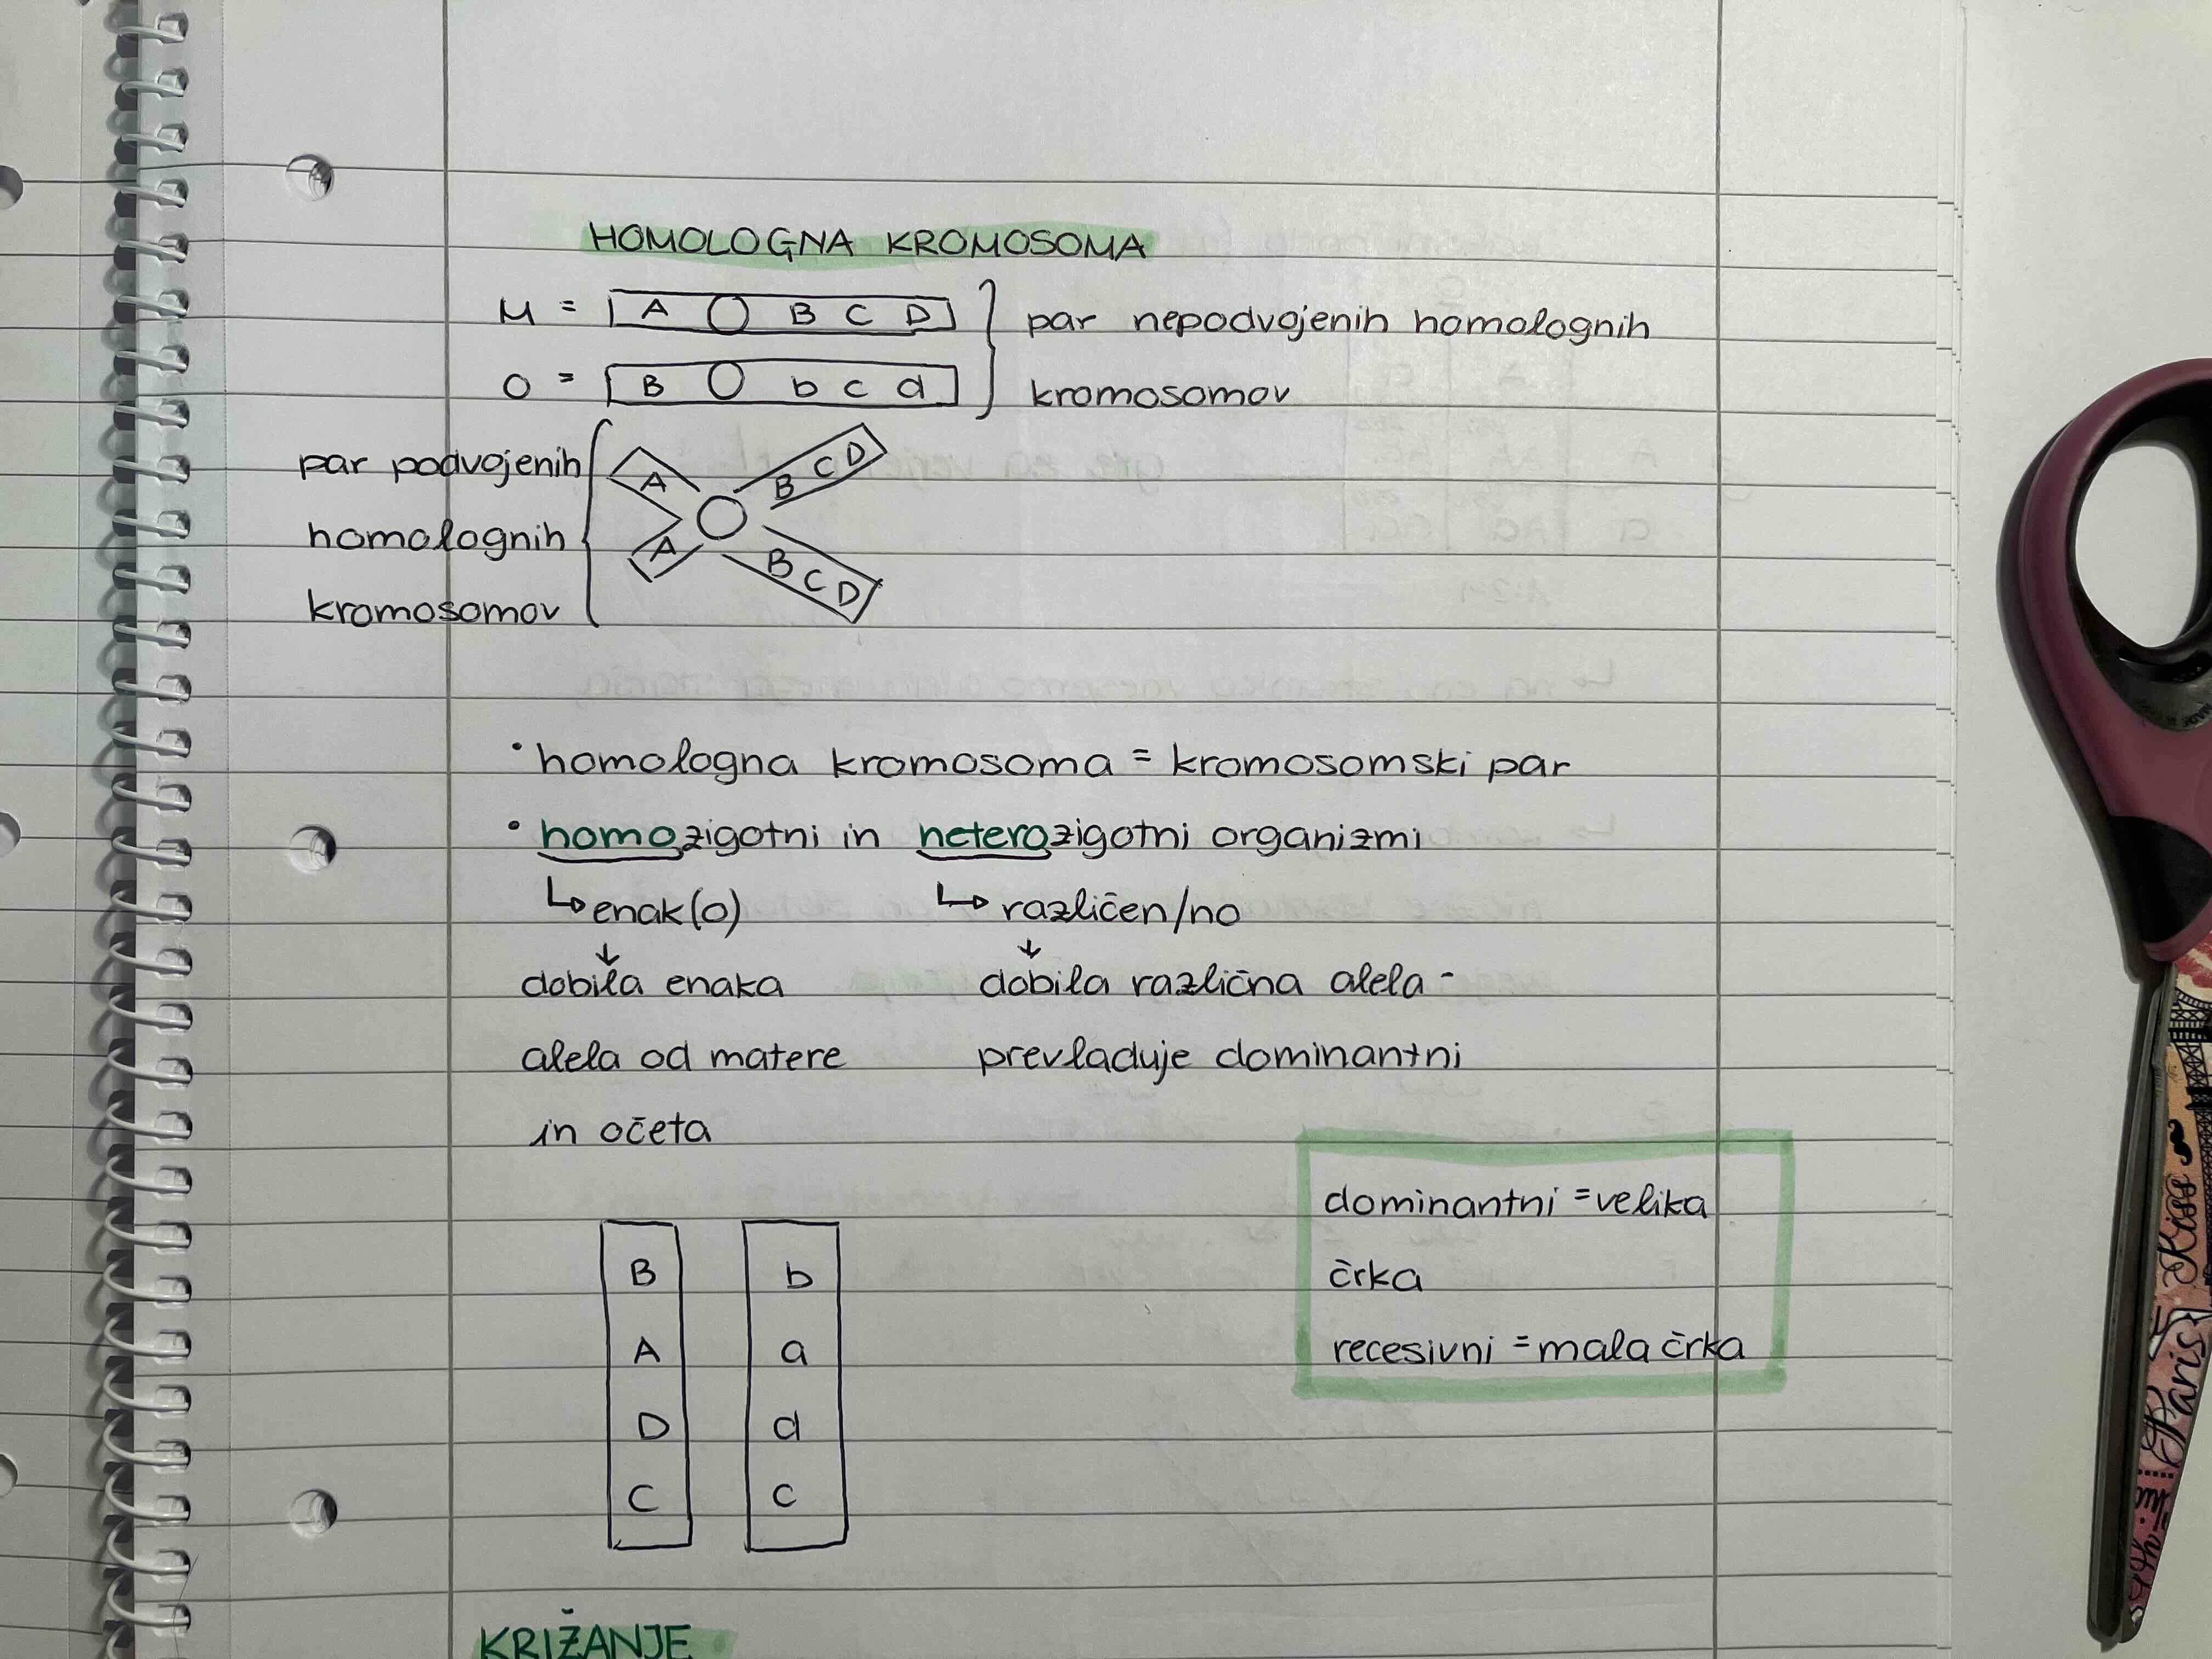 HOMOLOGNA KROMOSOMA
M = A B C D } par nepodvojenih homolognih
O = B b c d } kromosomov
par podvojenih
homolognih
kromosomov
A B C D
A B C D
• homologna kromosoma = kromosomski par
• homozigotni in heterozigotni organizmi
↳ enak(o) ↳ različen/no
dobila enaka dobila različna alela -
alela od matere prevladuje dominantni
in očeta
dominantni = velika
črka
recesivni = mala črka
B b
A a
D d
C c
KRIŽANJE
Paris
Kiss